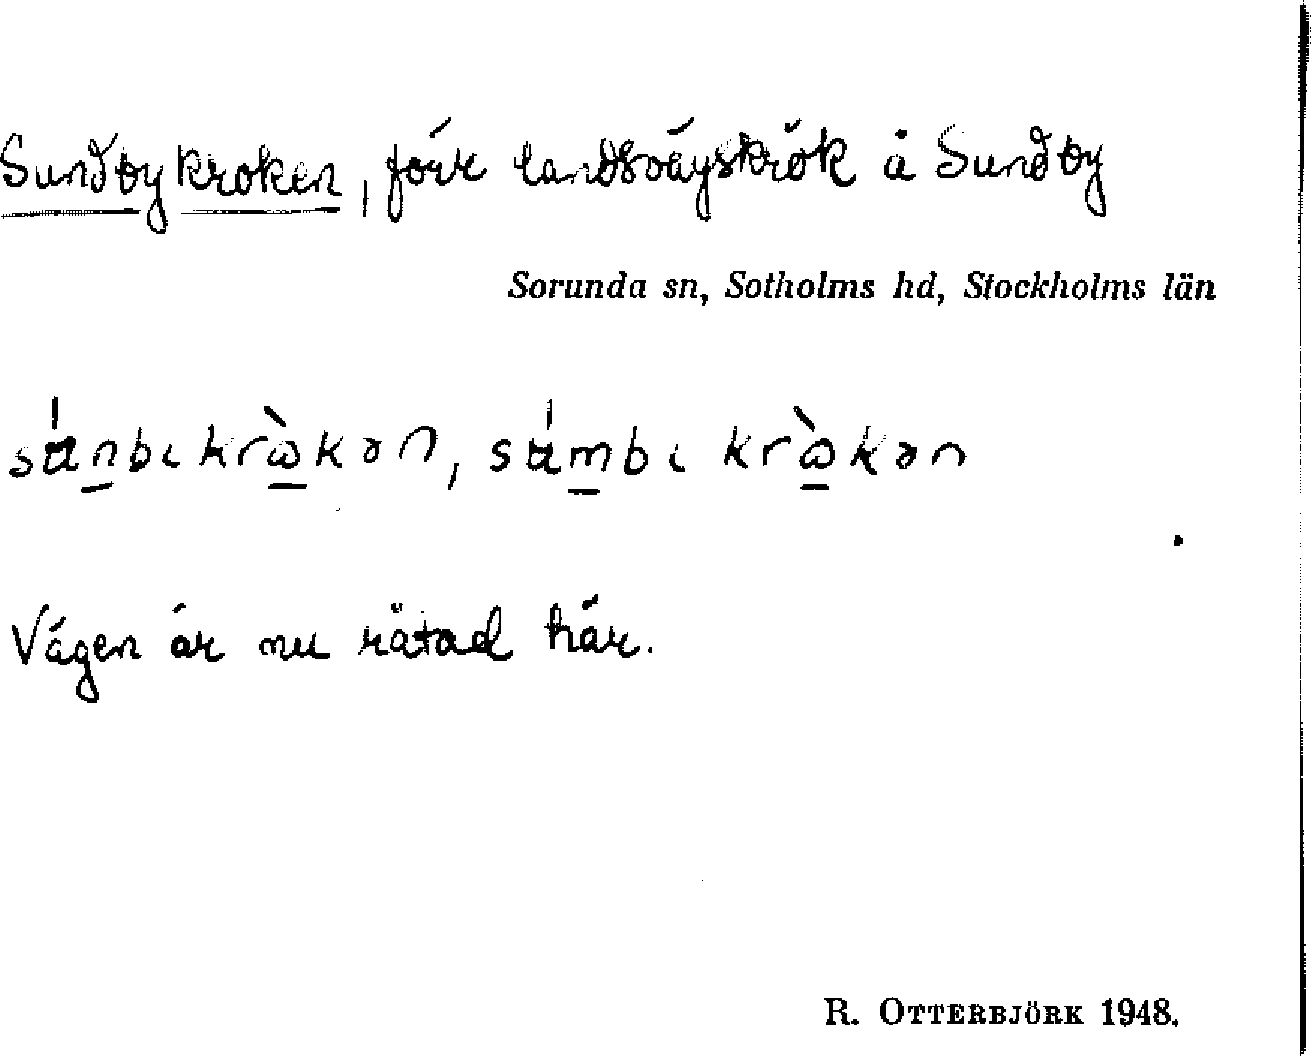 Sundbykroken, förr landsvägskrök å Sundby
Sorunda sn, Sotholms hd, Stockholms län
Vägen är nu rätad här.
R. OTTERBJÖRK 1948.